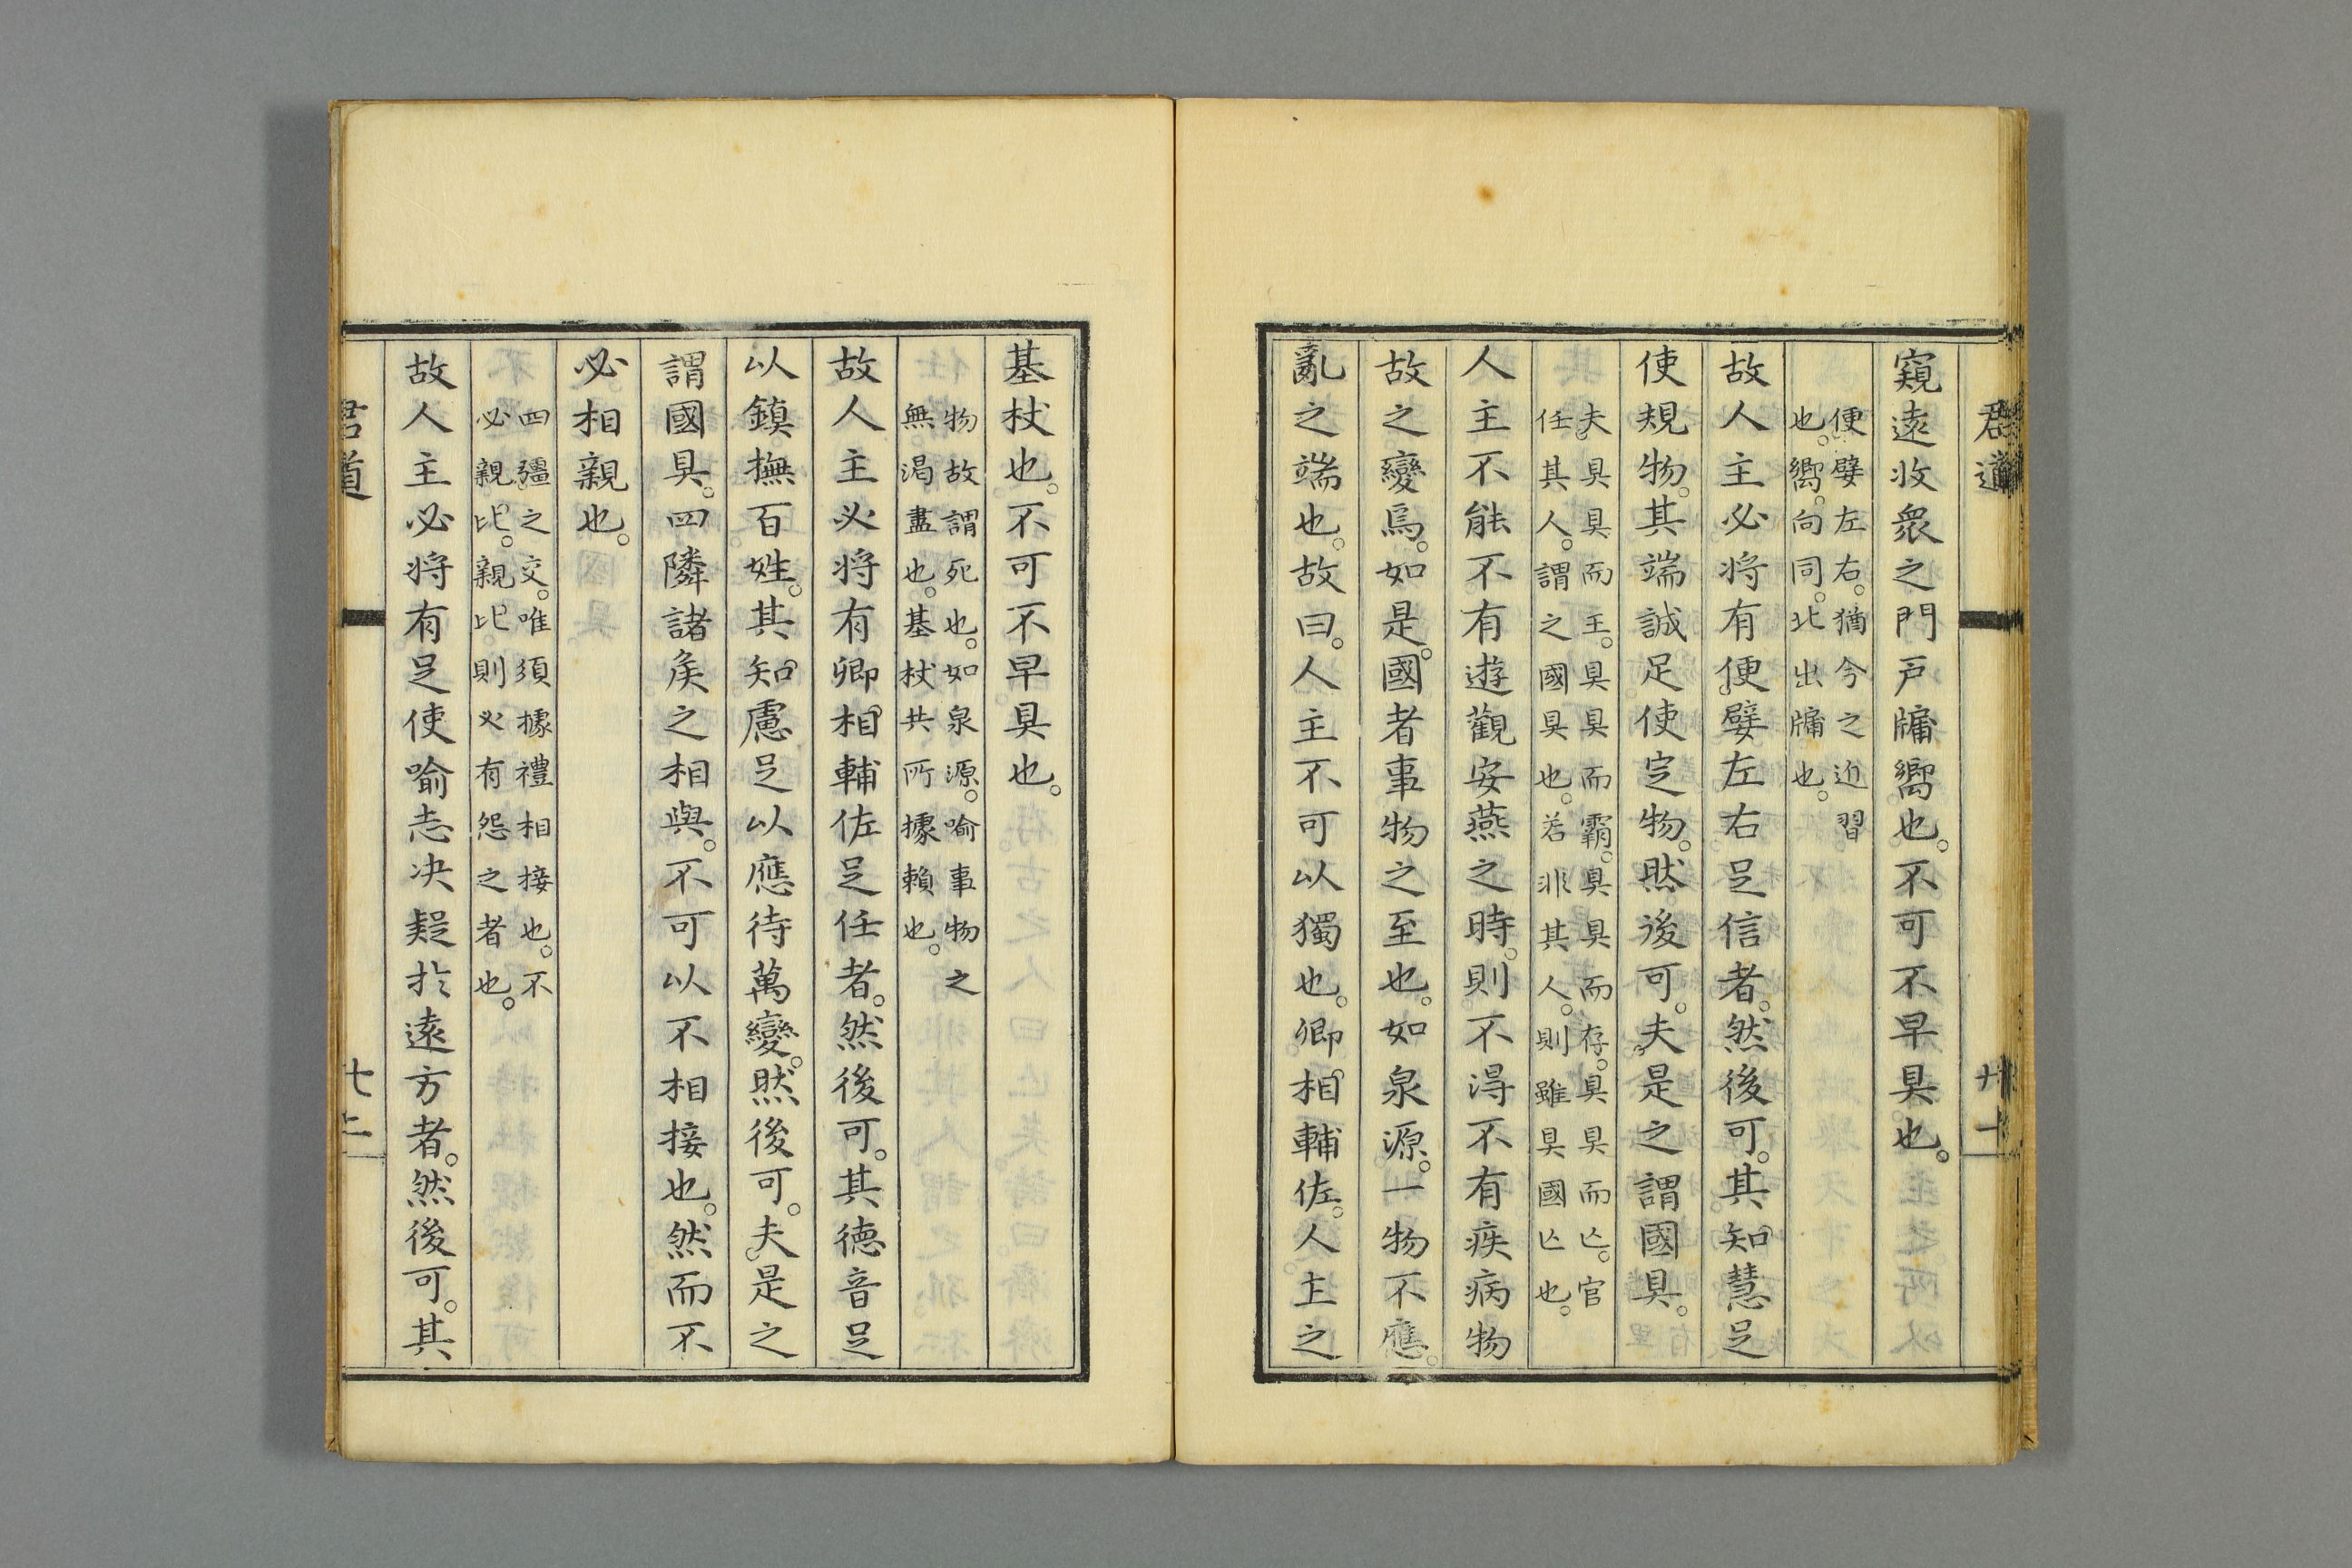 君道 廿一
窺遠收衆之門戸牖嚮也。不可不早具也。
便嬖左右。猶今之近習
也。嚮。向同。北出牖也。
故人主必將有便嬖左右足信者。然後可。其知慧足
使規物。其端誠足使定物。然後可。夫是之謂國具。
夫具具而主。具具而霸。具具而存。具具而亾。官
任其人。謂之國具也。若非其人。則雖具國亾也。
人主不能不有遊觀安燕之時。則不得不有疾病物
故之變焉。如是。國者事物之至也。如泉源。一物不應。
亂之端也。故曰。人主不可以獨也。卿相輔佐。人主之
基杖也。不可不早具也。
物故謂死也。如泉源。喻事物之
無渇盡也。基杖共所據賴也。
故人主必將有卿相輔佐足任者。然後可。其德音足
以鎮撫百姓。其知慮足以應待萬變。然後可。夫是之
謂國具。四隣諸矦之相與。不可以不相接也。然而不
必相親也。
四彊之交。唯須據禮相接也。不
必親比。親比。則必有怨之者也。
故人主必將有足使喻志決疑於遠方者。然後可。其
君道 廿二